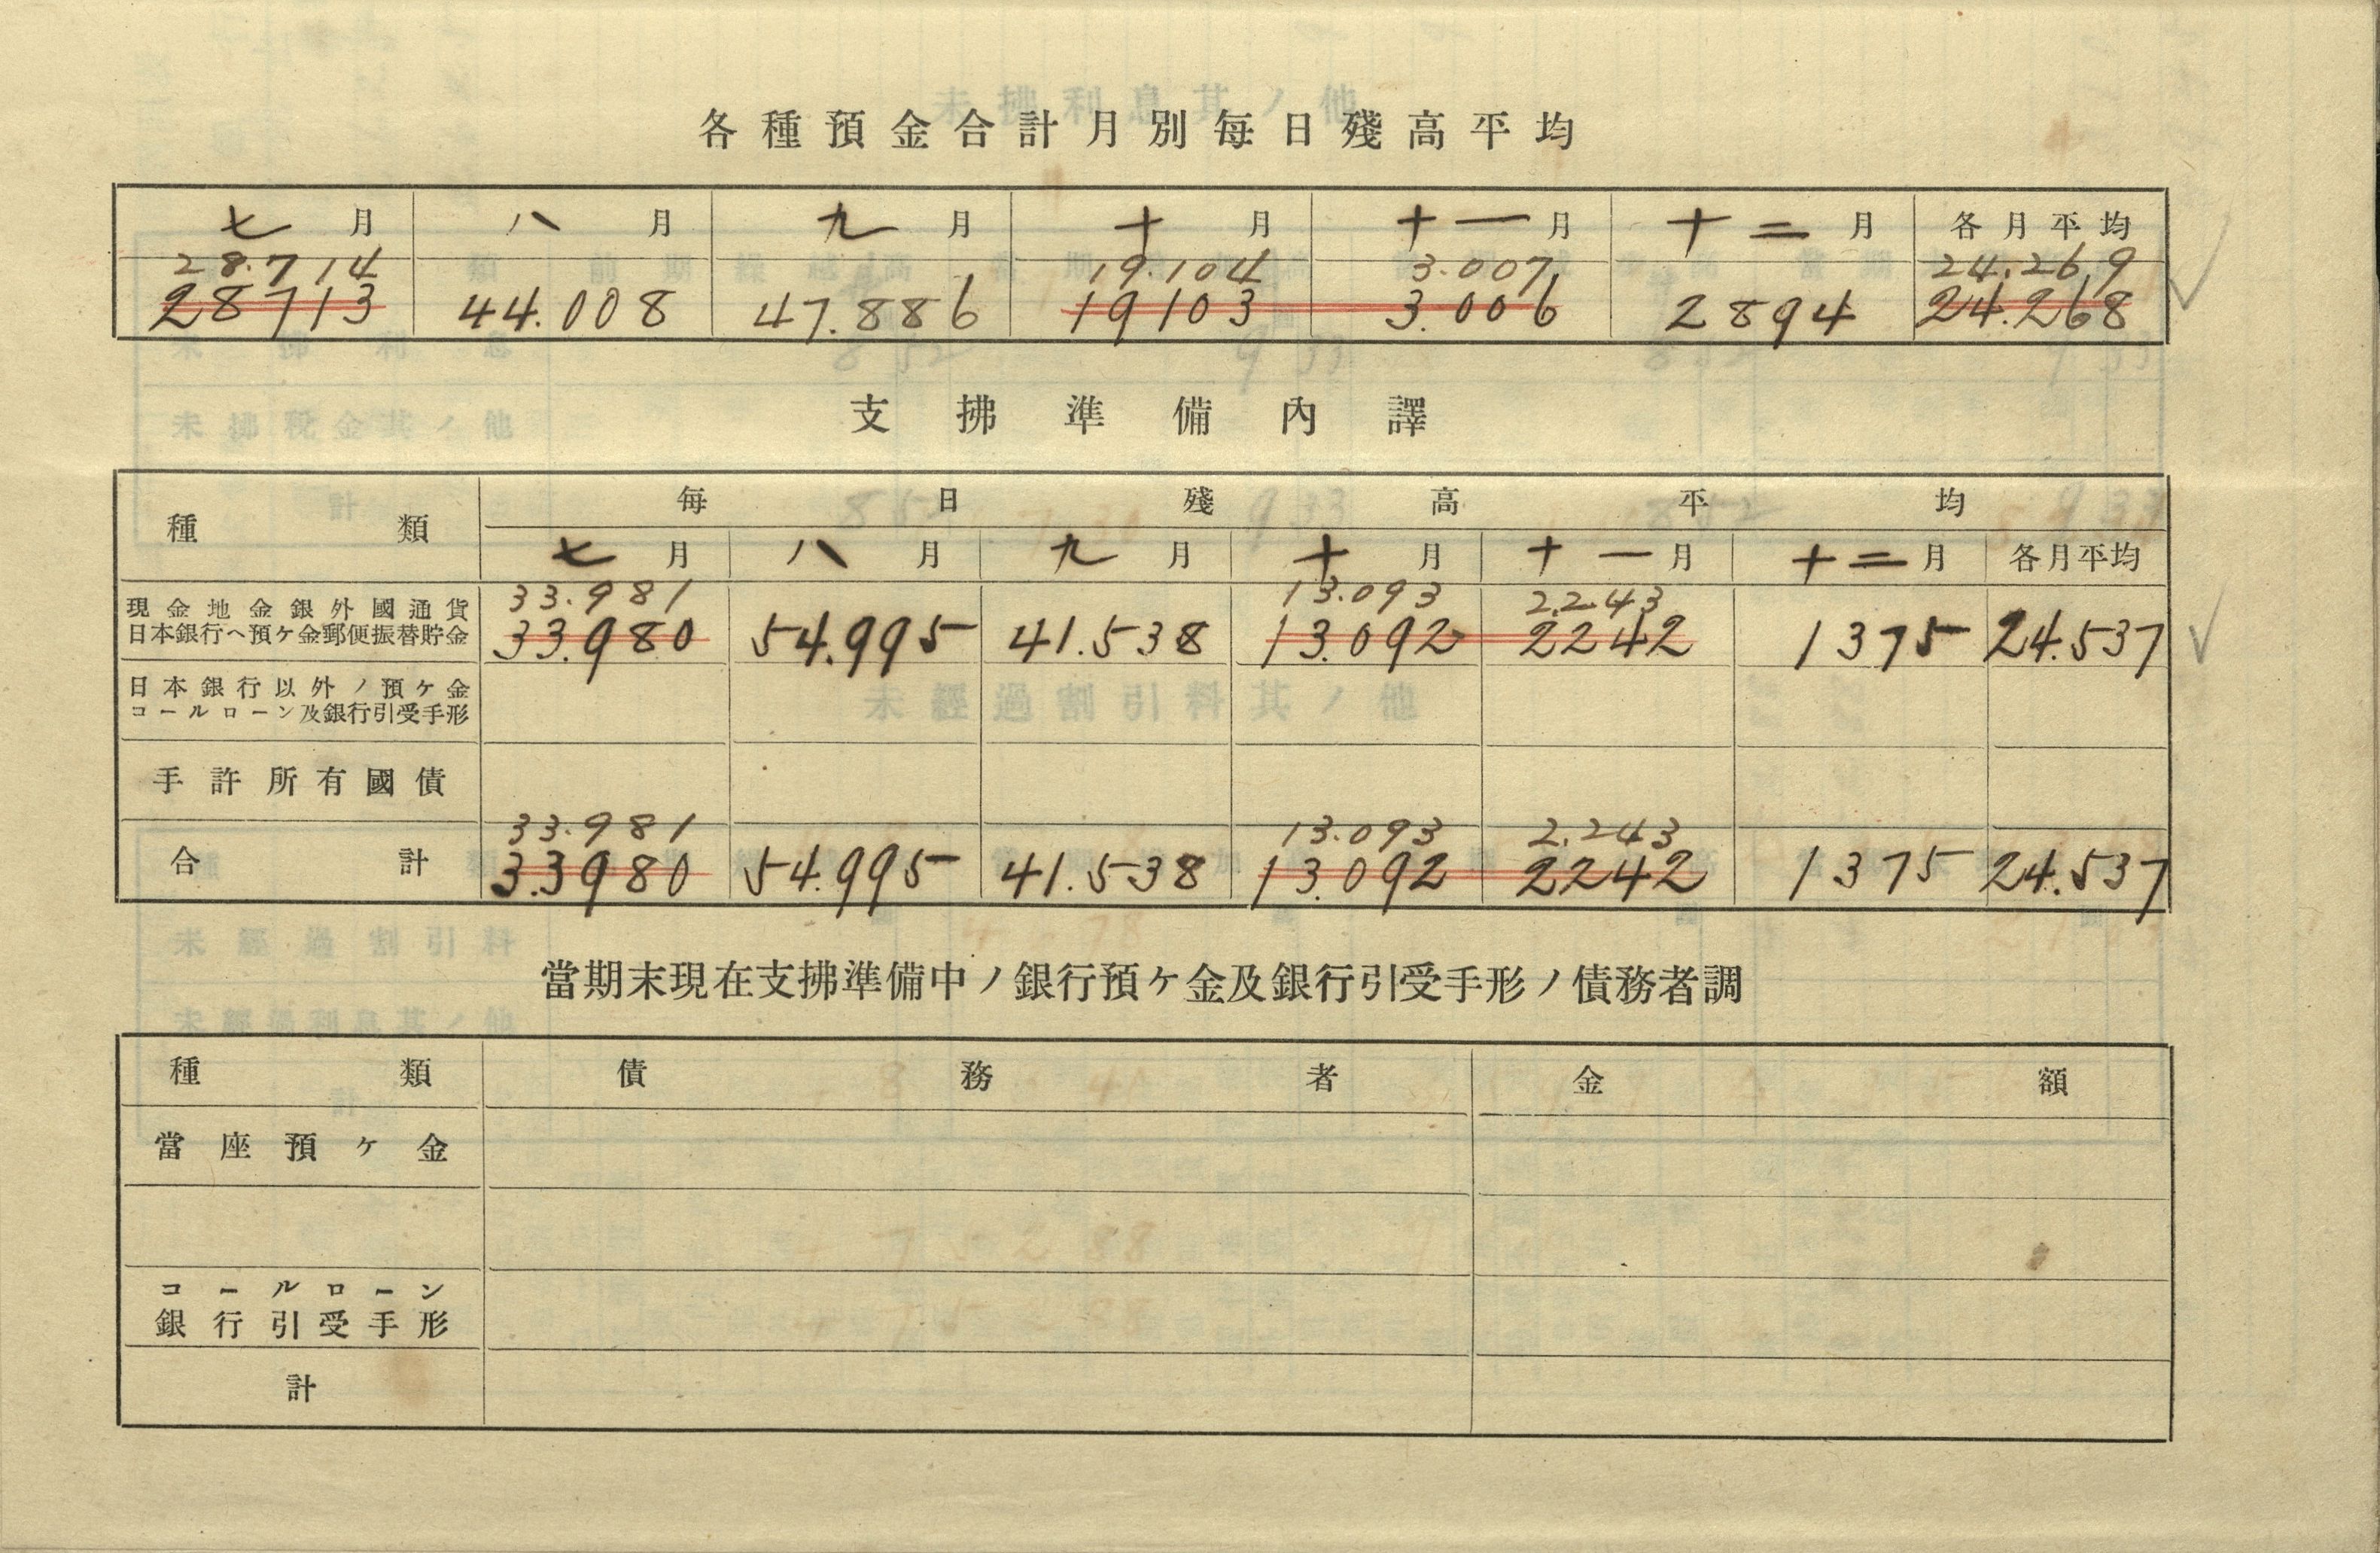 各種預金合計月別每日殘高平均
七月 八月 九月 十月 十一月 十二月 各月平均
28.714 19.104 3.007 24.269
28713 44.008 47.886 19103 3.006 2894 24.268
支拂準備內譯
種類 每日殘高平均
七月 八月 九月 十月 十一月 十二月 各月平均
33.981 13.093 2.243
現金地金銀外國通貨
日本銀行へ預ケ金郵便振替貯金 33.980 54.995 41.538 13.092 2242 1375 24.537
日本銀行以外ノ預ケ金
コールローン及銀行引受手形
手許所有國債
33.981 13.093 2.243
合計 33980 54.995 41.538 13.092 2242 1375 24.537
當期末現在支拂準備中ノ銀行預ケ金及銀行引受手形ノ債務者調
種類 債務者 金額
當座預ケ金
コールローン
銀行引受手形
計